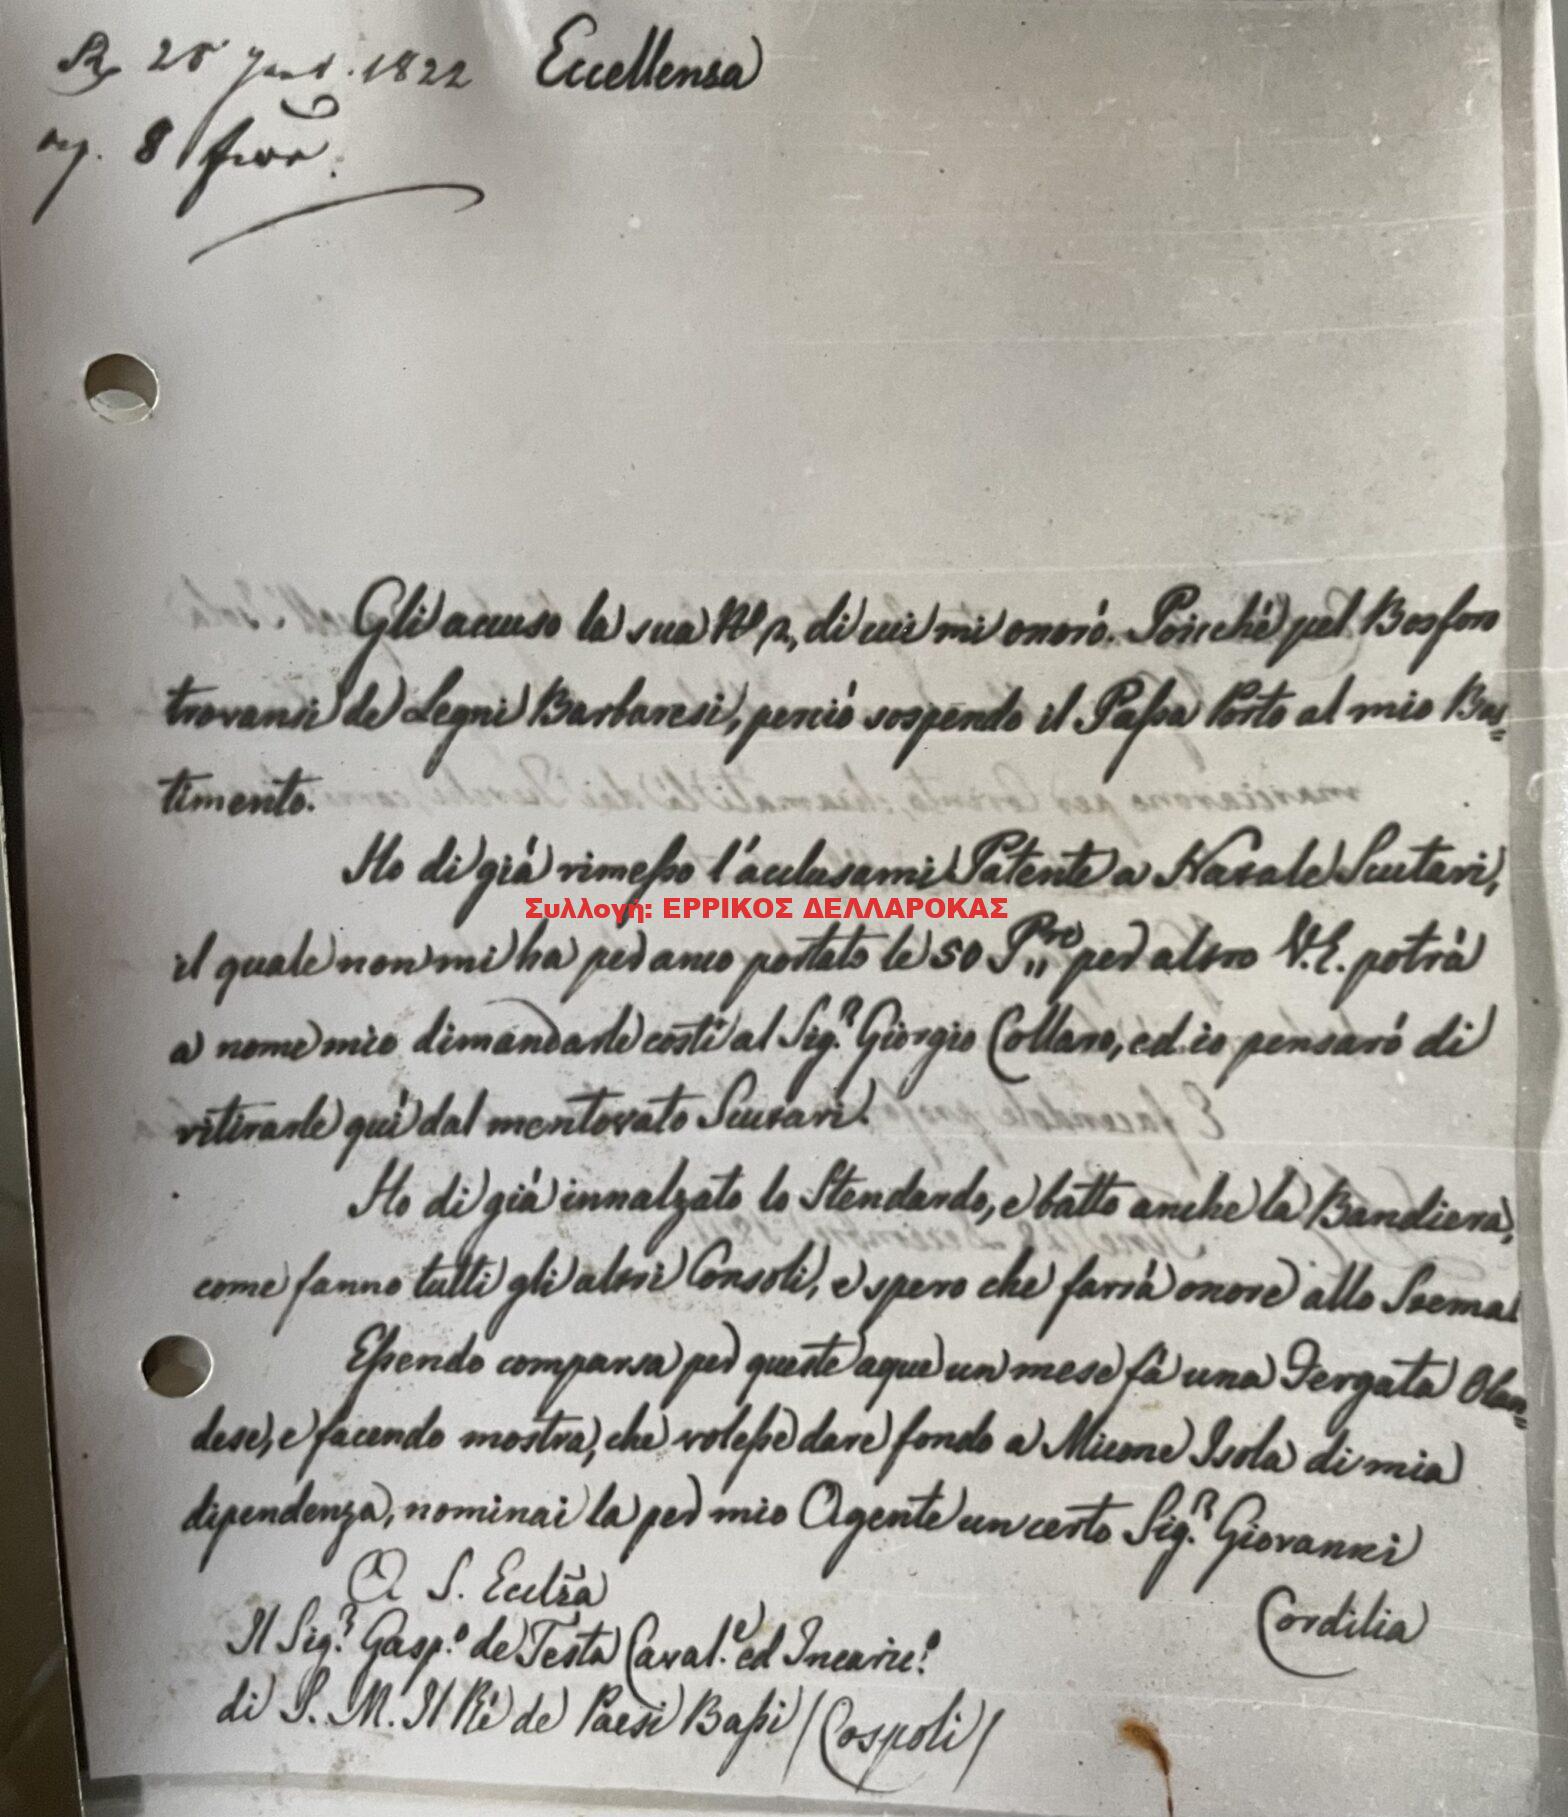 R 25 Janr. 1822 Eccellensa
rep. 8
Gli accuso la sua No 2, di cui mi onorò. Poicché pel Bosforo
trovansi de Legni Barbaresi, perciò sospendo il Passa Porto al mio Bas=
timento.
Ho di già rimesso l'acclusami Patente a Natale Scutari,
il quale non mi ha per anco portato le 50 Pre per altro V.E. potrà
a nome mio dimandarle costì al Sigr. Giorgio Collaro, ed io pensarò di
ritirarle quì dal mentovato Scutari.
Ho di già innalzato lo Stendardo, e batto anche la Bandiera,
come fanno tutti gli altri Consoli, e spero che farrà onore allo Stema!
Essendo comparsa per queste aque un mese fà una Fergata Olan=
dese, e facendo mostra, che volesse dare fondo a Micone Isola di mia
dipendenza, nominai la per mio Agente un certo Sigr. Giovanni
Cordilia
A S. Ecclza
Il Sigr. Gasp.o de Testa Caval.e ed Incaric.o
di S. M. Il Rè de Paesi Bassi /Cospoli/
Συλλογή: ΕΡΡΙΚΟΣ ΔΕΛΛΑΡΟΚΑΣ